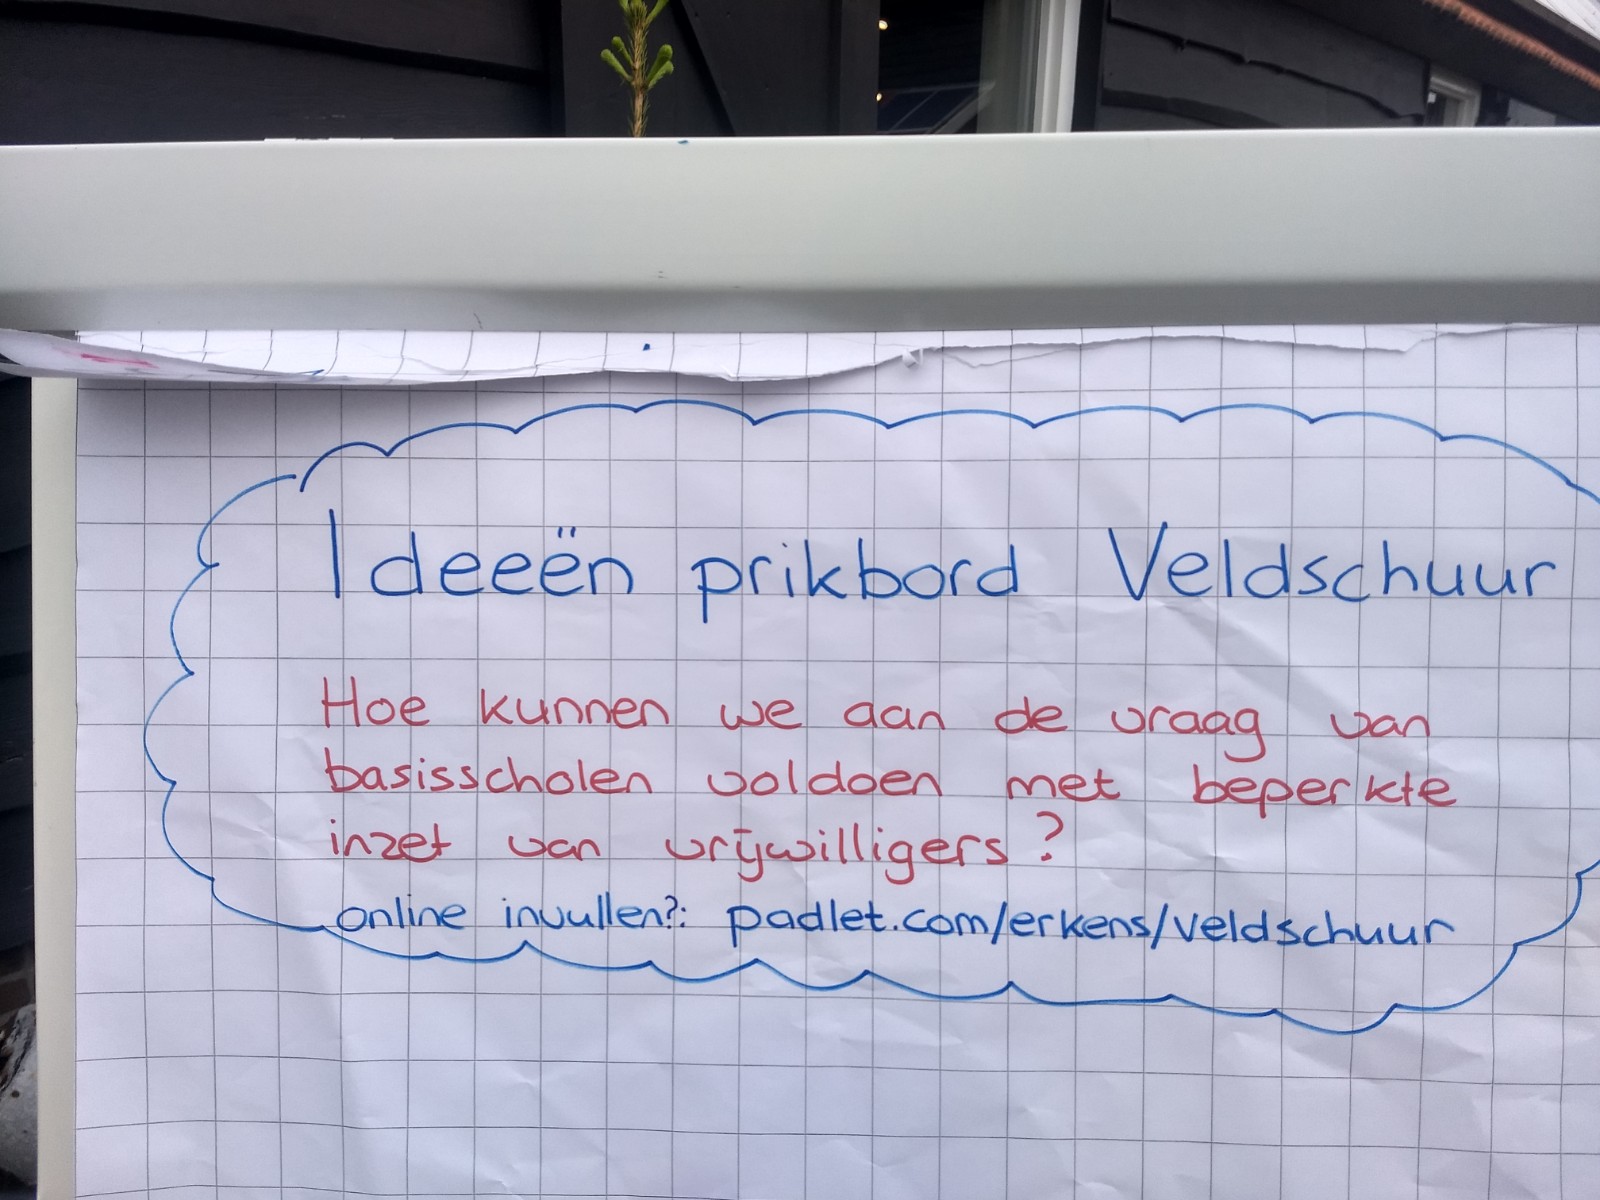 Ideeën prikbord Veldschuur
Hoe kunnen we aan de vraag van
basisscholen voldoen met beperkte
inzet van vrijwilligers?
online invullen?: padlet.com/erkens/veldschuur